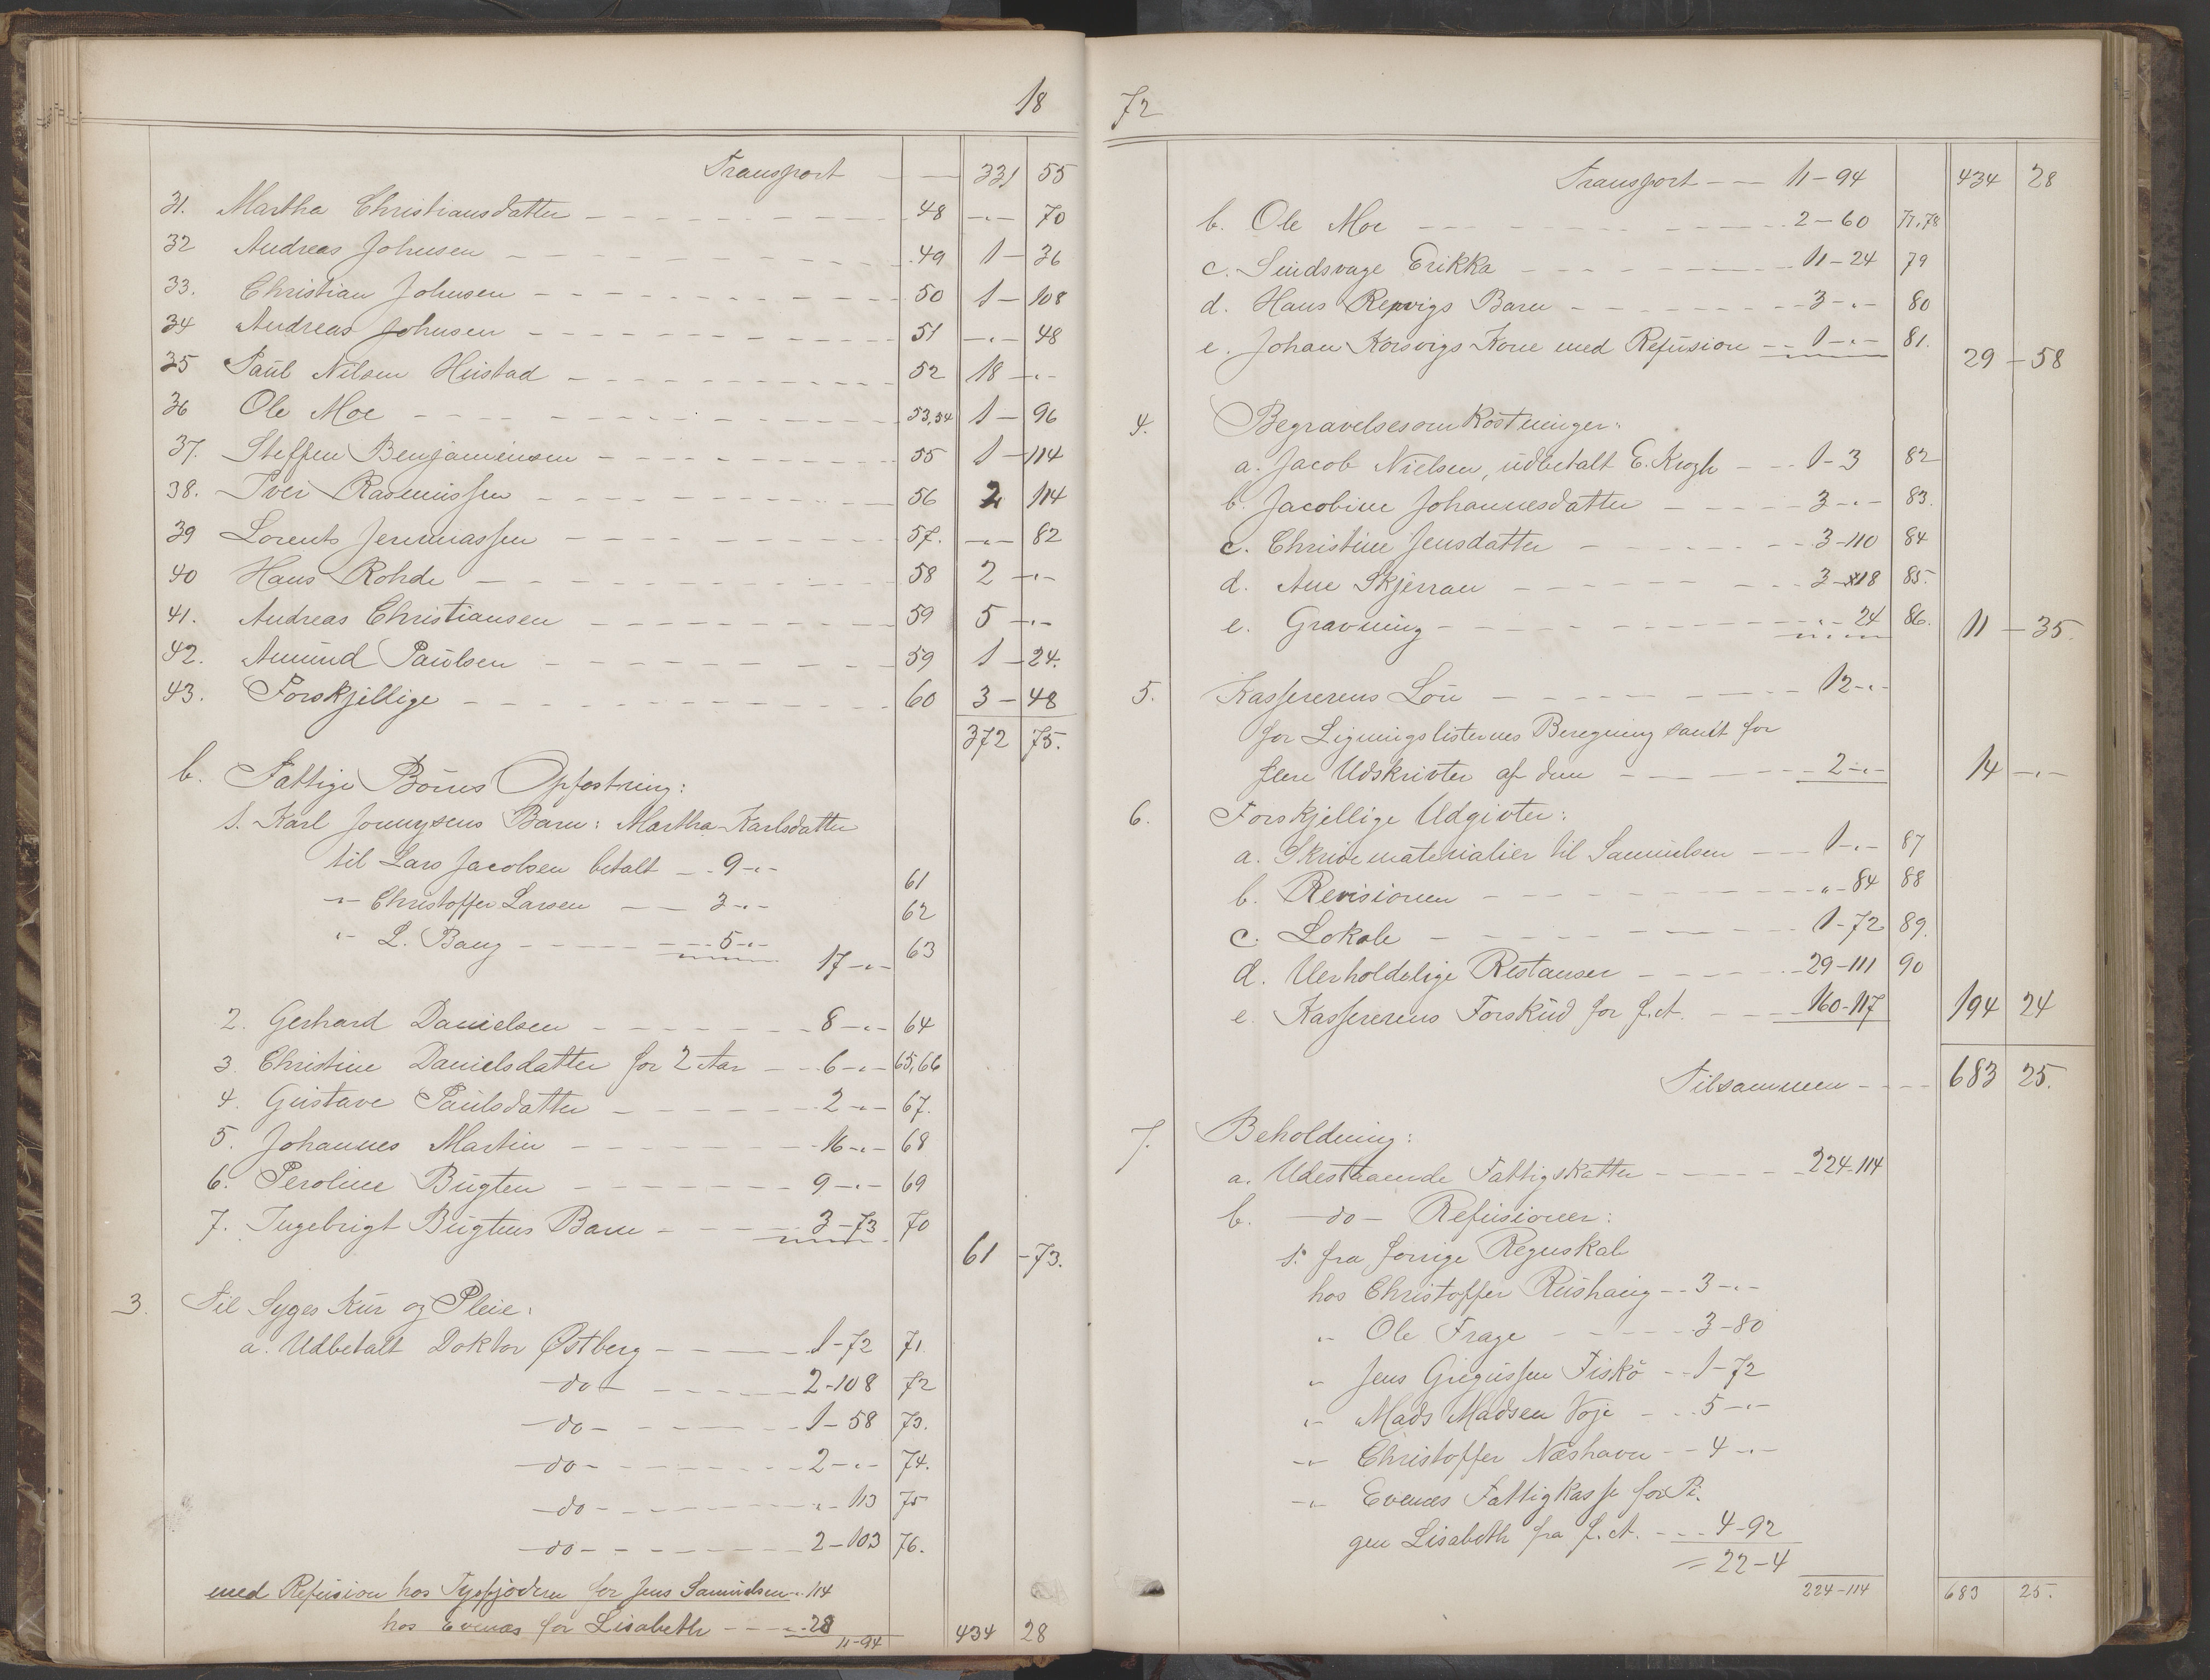 18
Transport — — 331 55
31. Martha Christiansdatter - - - 48 -"- 70
32 Andreas Johnsen - - - 49 1 - 36
33. Christian Johnsen - - - 50 1 - 108
34 Andreas Johnsen - - - 51 -"- 48
35 Paul Nilsen Hustad - - - 52 18 -"-
36 Ole Moe - - - 53,54 1 - 96
37. Steffen Benjaminsen - - - 55 1 - 114
38. Iver Rasmussen - - - 56 2 114
39 Lorents Jeremiassen - - - 57. -"- 82
40 Hans Rohde - - - 58 2 -"-
41. Andreas Christiansen - - - 59 5 -"-
42. Amund Paulsen - - - 59 1 - 24.
43. Forskjellige - - - 60 3 - 48
372 75.
b. Fattige Börns Opfostring:
1. Karl Jonnysens Barn: Martha Karlsdatter
til Lars Jacobsen betalt - 9 -"-
61
-"- Christoffer Larsen - - 3 -"- 62
"- L. Bang - - - 5 -"- 63
17 -"-
2. Gerhard Danielsen - - - 8 -"- 64
3. Christine Danielsdatter for 2 Aar - - 6 -"- 65,66
4. Gustave Paulsdatter - - - 2 -"- 67.
5. Johannes Martin - - - 16 -"- 68
6. Peroline Bugten - - - 9 -"- 69
7. Ingebrigt Bugtens Barn - - - 3 - 73 70
61 - 73.
3. Til Syges Kur og Pleie:
a. Udbetalt Doktor Østberg - - - 1 - 72 71.
- do - - - - 2 - 108 72
- do - - - - 1 - 58 73.
- do - - - - 2 -"- 74.
- do - - - - "- 113 75
- do - - - - 2 - 103 76.
med Refusion hos Tysfjorden for Jens Samuelsen "- 114
hos Evenæs for Lisabeth - - - "- 28
11 - 94 434 28
72
Transport - - 11 - 94 434 28
b. Ole Moe - - - 2 - 60 77,78
c. Sindsvage Erikka - - - 11 - 24 79
d. Hans Repvigs Barn - - - 3 -"- 80
e. Johan Korsvigs Kone med Refusion - - 1 -"- 81.
29 - 58
4. Begravelsesomkostninger:
a. Jacob Nielsen, udbetalt E. Krogh - - 1 - 3 82
b. Jacobine Johannesdatter - - - 3 -"- 83.
c. Christine Jensdatter - - - 3 - 110 84
d. Ane Skjerran - - - 3 - 18 85.
e. Gravning - - - "- 24 86. 11 - 35.
5. Kassererens Lön - - - 12 -"-
for Ligningslisternes Beregning samt for
flere Udskrivter af dem - - - 2 -"- 14 -"-
6. Forskjellige Udgivter:
a. Skrivematerialier til Samuelsen - - 1 -"- 87
b. Revisionen - - - "- 84 88
c. Lokale - - - 1 - 72 89.
d. Uerholdelige Restanser - - - 29 - 111 90
e. Kassererens Forskud for f. A. - - - 160 - 117 194 24
Tilsammen - - - 683 25.
7. Beholdning:
a. Udestaaende Fattigskatter - - - 224 - 114
b. - do - Refusioner:
1. fra forrige Regnskab
hos Christoffer Rushaug - - 3 -"-
"- Ole Frage - - - 3 - 80
"- Jens Gregussen Fiskö - - 1 - 72
"- Mads Madsen Voje - - 5 -"-
-"- Christoffer Næshavn - - 4 -"-
-"- Evenæs Fattigkasse for Pi.
gen Lisabeth fra f. A. - - - 4 - 92
= 22 - 4
224 - 114 683 25.